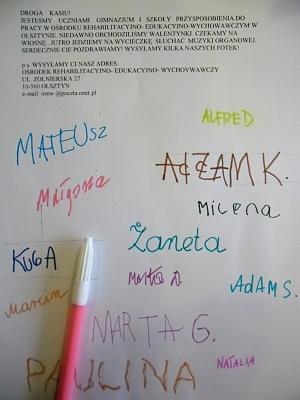 DROGA KASIU!
JESTEŚMY UCZNIAMI GIMNAZJUM I SZKOŁY PRZYSPOSOBIENIA DO
PRACY W OŚRODKU REHABILITACYJNO- EDUKACYJNO-WYCHOWAWCZYM W
OLSZTYNIE. NIEDAWNO OBCHODZILIŚMY WALENTYNKI. CZEKAMY NA
WIOSNĘ. JUTRO JEDZIEMY NA WYCIECZKĘ SŁUCHAĆ MUZYKI ORGANOWEJ.
SERDECZNIE CIĘ POZDRAWIAMY! WYSYŁAMY KILKA NASZYCH FOTEK!
p.s WYSYŁAMY CI NASZ ADRES:
OŚRODEK REHABILITACYJNO- EDUKACYJNO- WYCHOWAWCZY
UL. ŻOŁNIERSKA 27
10-560 OLSZTYN
e-mail: orew @poczta.onet.pl
ALFRED
MATEUSZ
ADAM K.
Małgosia
MILENA
Żaneta
KUBA
Marta D.
ADAM S.
Marcin
MARTA G.
PAULINA
NATALIA